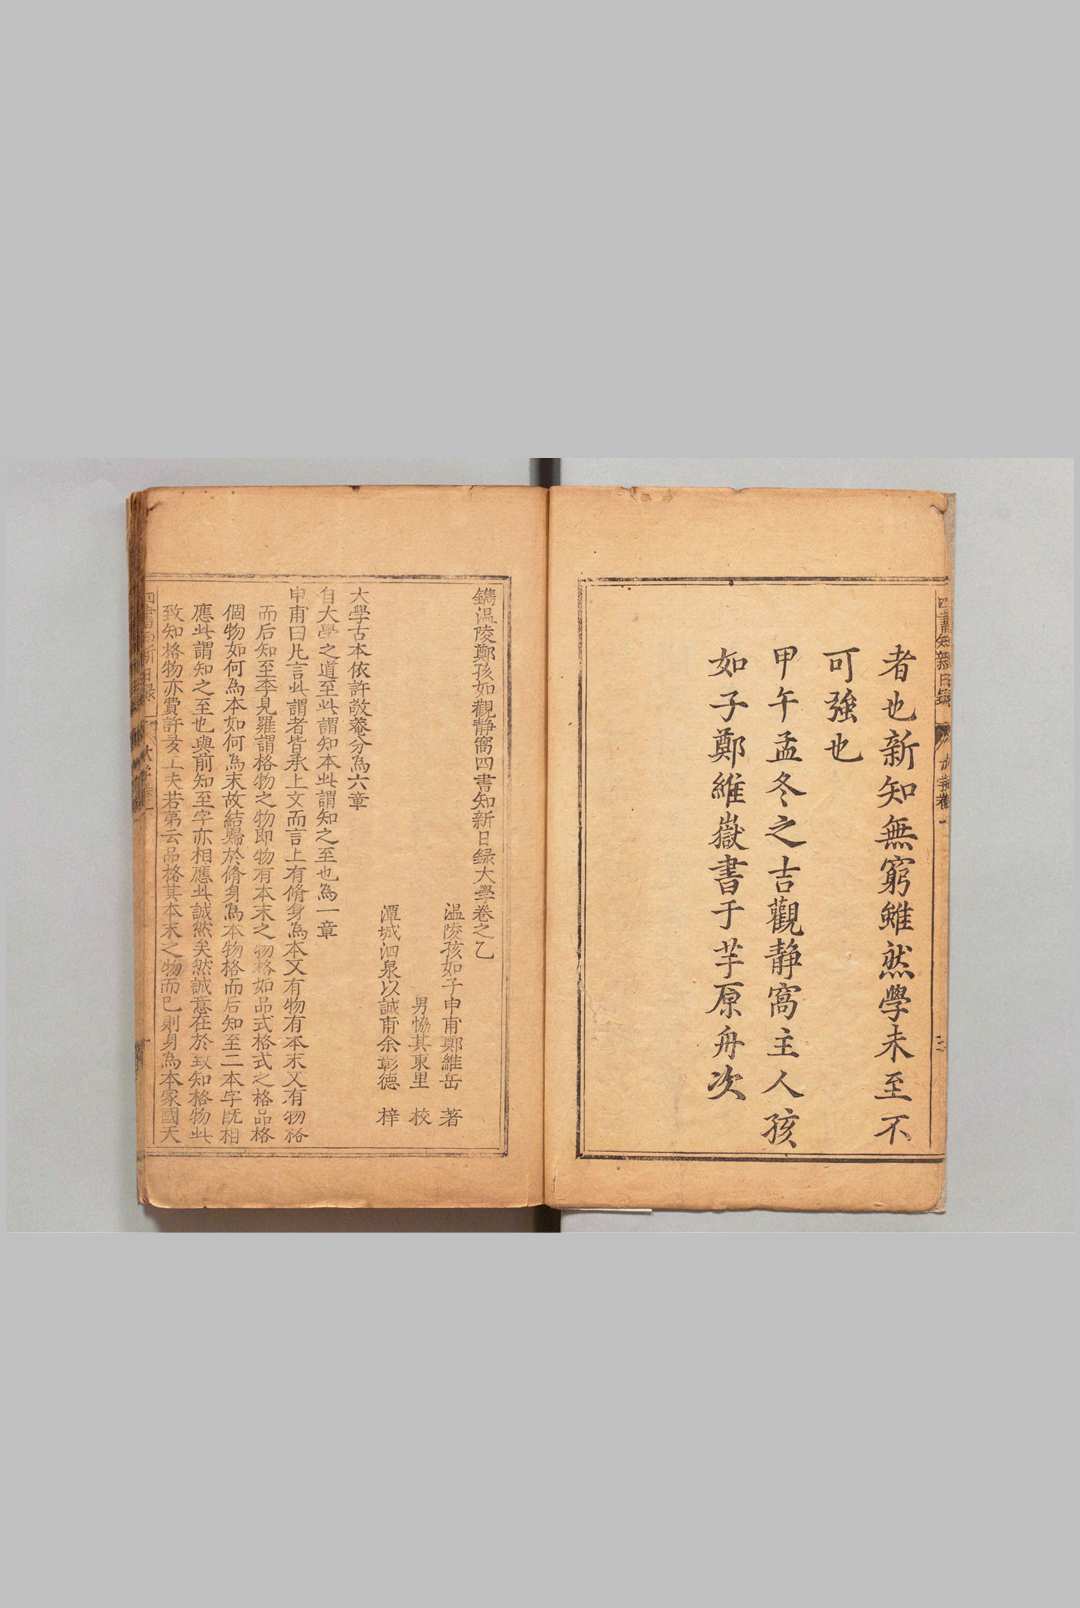 者也新知無窮雖然學未至不
可強也
甲午孟冬之吉觀靜窩主人孩
如子鄭維嶽書于芋原舟次
鐫溫陵鄭孩如觀靜窩四書知新日録大學卷之乙
溫陵孩如子申甫鄭維岳 著
男恊其東里 校
潭城泗泉以誠甫余彰德 梓
大學古本依許敬菴分為六章
自大學之道至此謂知本此謂知之至也為一章
申甫曰凡言此謂者皆承上文而言上有脩身為本又有物有本末又有物格
而后知至李見羅謂格物之物即物有本末之物格如品式格式之格品格
個物如何為本如何為末故結歸於脩身為本物格而后知至二本字既相
應此謂知之至也與前知至字亦相應此誠然矣然誠意在於致知格物此
致知格物亦費許多工夫若第云品格其本末之物而已則身為本家國天